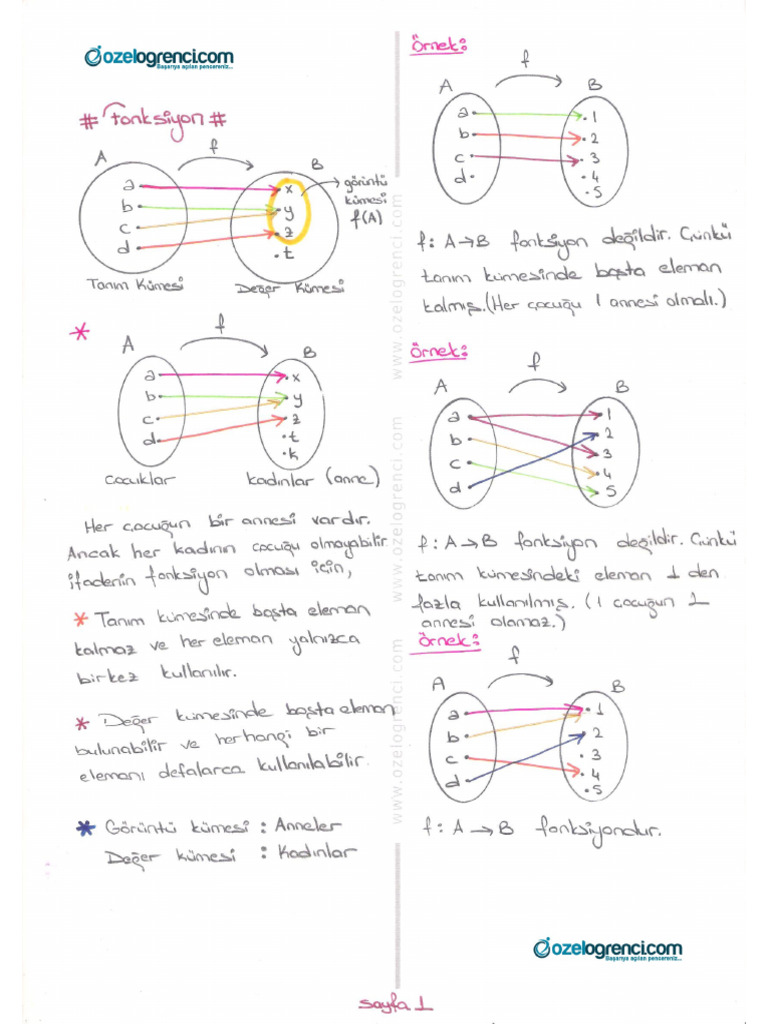 ozelogrenci.com
Başarıya açılan pencereniz...
# Fonksiyon #
f
A
B
a
b
c
d
x
y
z
t
görüntü
kümesi
f(A)
Tanım Kümesi
Değer Kümesi
*
f
A
B
a
b
c
d
x
y
z
t
k
çocuklar
kadınlar (anne)
Her çocuğun bir annesi vardır.
Ancak her kadının çocuğu olmayabilir
ifadenin fonksiyon olması için,
* Tanım kümesinde boşta eleman
kalmaz ve her eleman yalnızca
bir kez kullanılır.
* Değer kümesinde boşta eleman
bulunabilir ve herhangi bir
elemanı defalarca kullanılabilir.
* Görüntü kümesi : Anneler
Değer kümesi : Kadınlar
www.ozelogrenci.com
www.ozelogrenci.com
www.ozelogrenci.com
Örnek:
f
A
B
a
b
c
d
1
2
3
4
5
f: A→B fonksiyon değildir. Çünkü
tanım kümesinde boşta eleman
kalmış. (Her çocuğu 1 annesi olmalı.)
Örnek:
f
A
B
a
b
c
d
1
2
3
4
5
f: A→B fonksiyon değildir. Çünkü
tanım kümesindeki eleman 1 den
fazla kullanılmış. (1 çocuğun 2
annesi olamaz.)
Örnek:
f
A
B
a
b
c
d
1
2
3
4
5
f: A→B fonksiyondur.
ozelogrenci.com
Başarıya açılan pencereniz...
sayfa 1